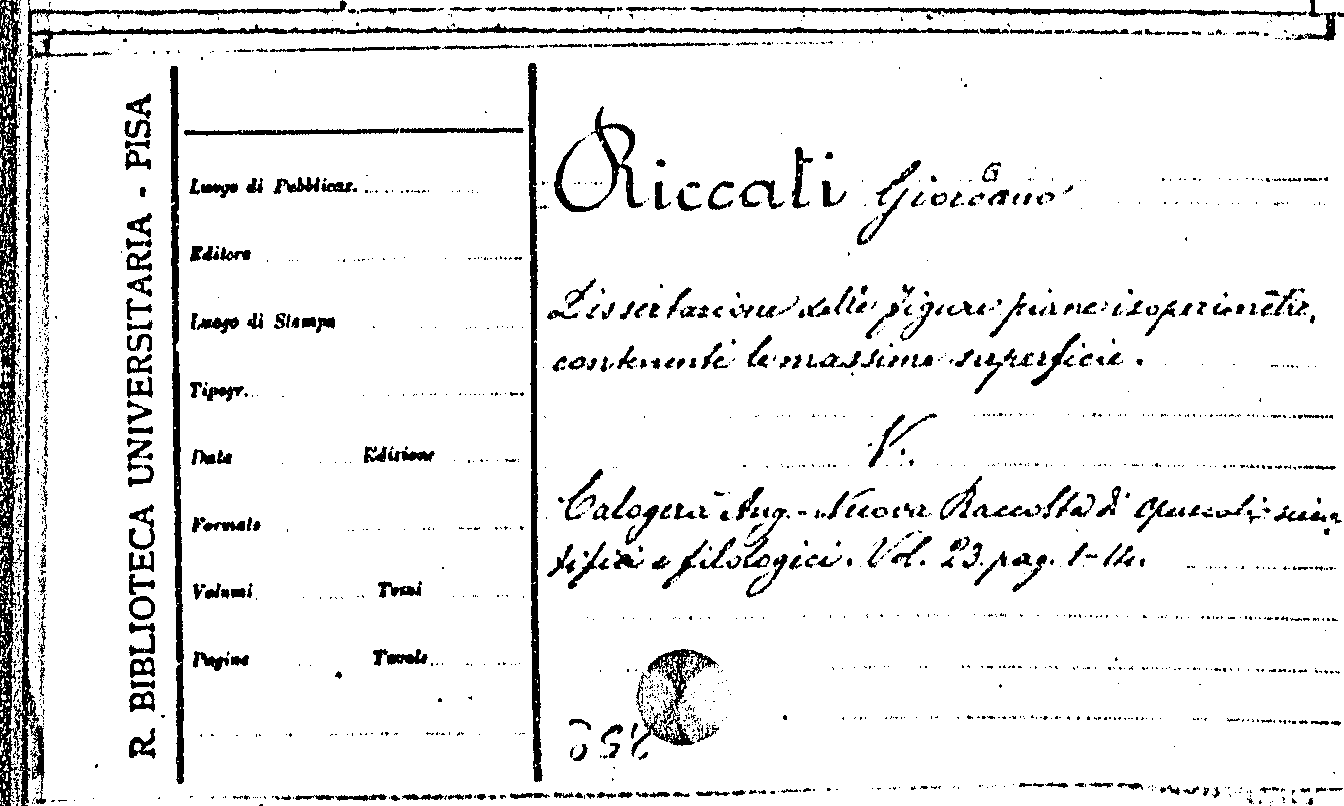 R. BIBLIOTECA UNIVERSITARIA - PISA
Luogo di Pubblicaz.
Editore
Luogo di Stampa
Tipogr.
Data Edizione
Formato
Volumi Tomi
Pagine Tavole
Riccati Giordano
Dissertazione delle figure piane isoperimetre,
contenenti le massime superficie.
V.
Calogerà Ang. - Nuova Raccolta di opuscoli scien
tifici e filologici. Vol. 23. pag. 1-14.